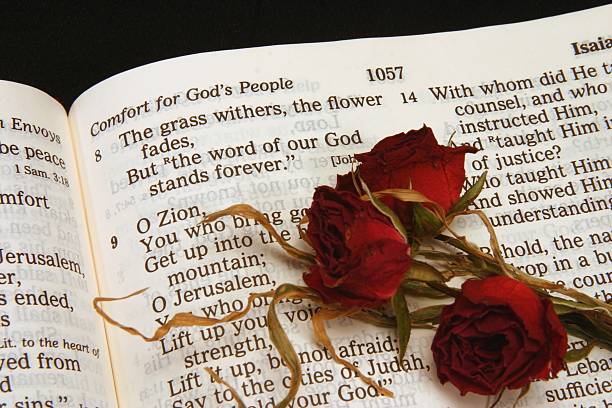 n Envoys
be peace
1 Sam. 3:18
mfort
Jerusalem,
er,
s ended,
Lit. to the heart of
yed from
sins."
Comfort for God's People
1057
Isaia
8 The grass withers, the flower
fades,
But Rthe word of our God
stands forever." [Joh
9 O Zion,
You who bring go
Get up into the
mountain;
O Jerusalem,
You who bring
Lift up your voi
strength,
Lift it up, be not afraid;
Say to the cities of Judah,
hold your God!"
14 With whom did He ta
counsel, and who
instructed Him,
And Rtaught Him i
of justice?
taught Him
And showed Him
understanding
Behold, the na
rop in a bu
count
Leba
suffici